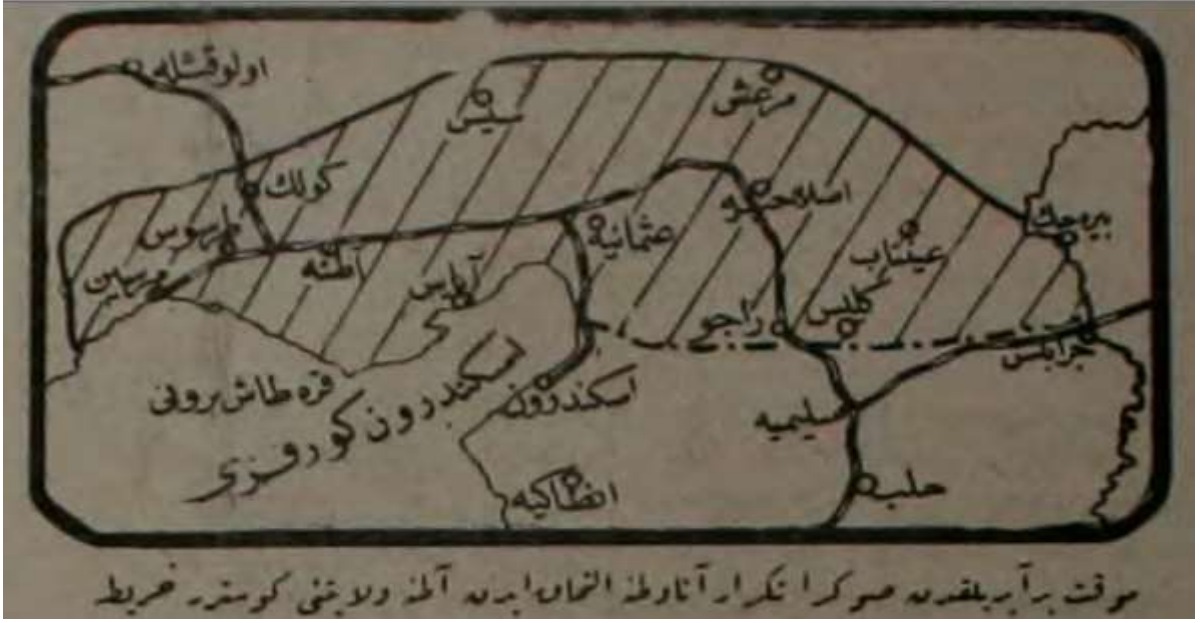 اولوقشله
سيس
مرعش
كولك
اصلاحيه
طرسوس
مرسين
آطنه
عثمانيه
عينتاب
بيره‌جك
آياس
كليس
راجو
جرابلس
قره طاش برونى
اسكندرون كورفزى
اسكندرون
سليميه
انطاكيه
حلب
موقت بر آيريلقدن صوكرا تكرار آناوطنه التحاق ايدن آطنه ولايتنى كوسترر خريطه